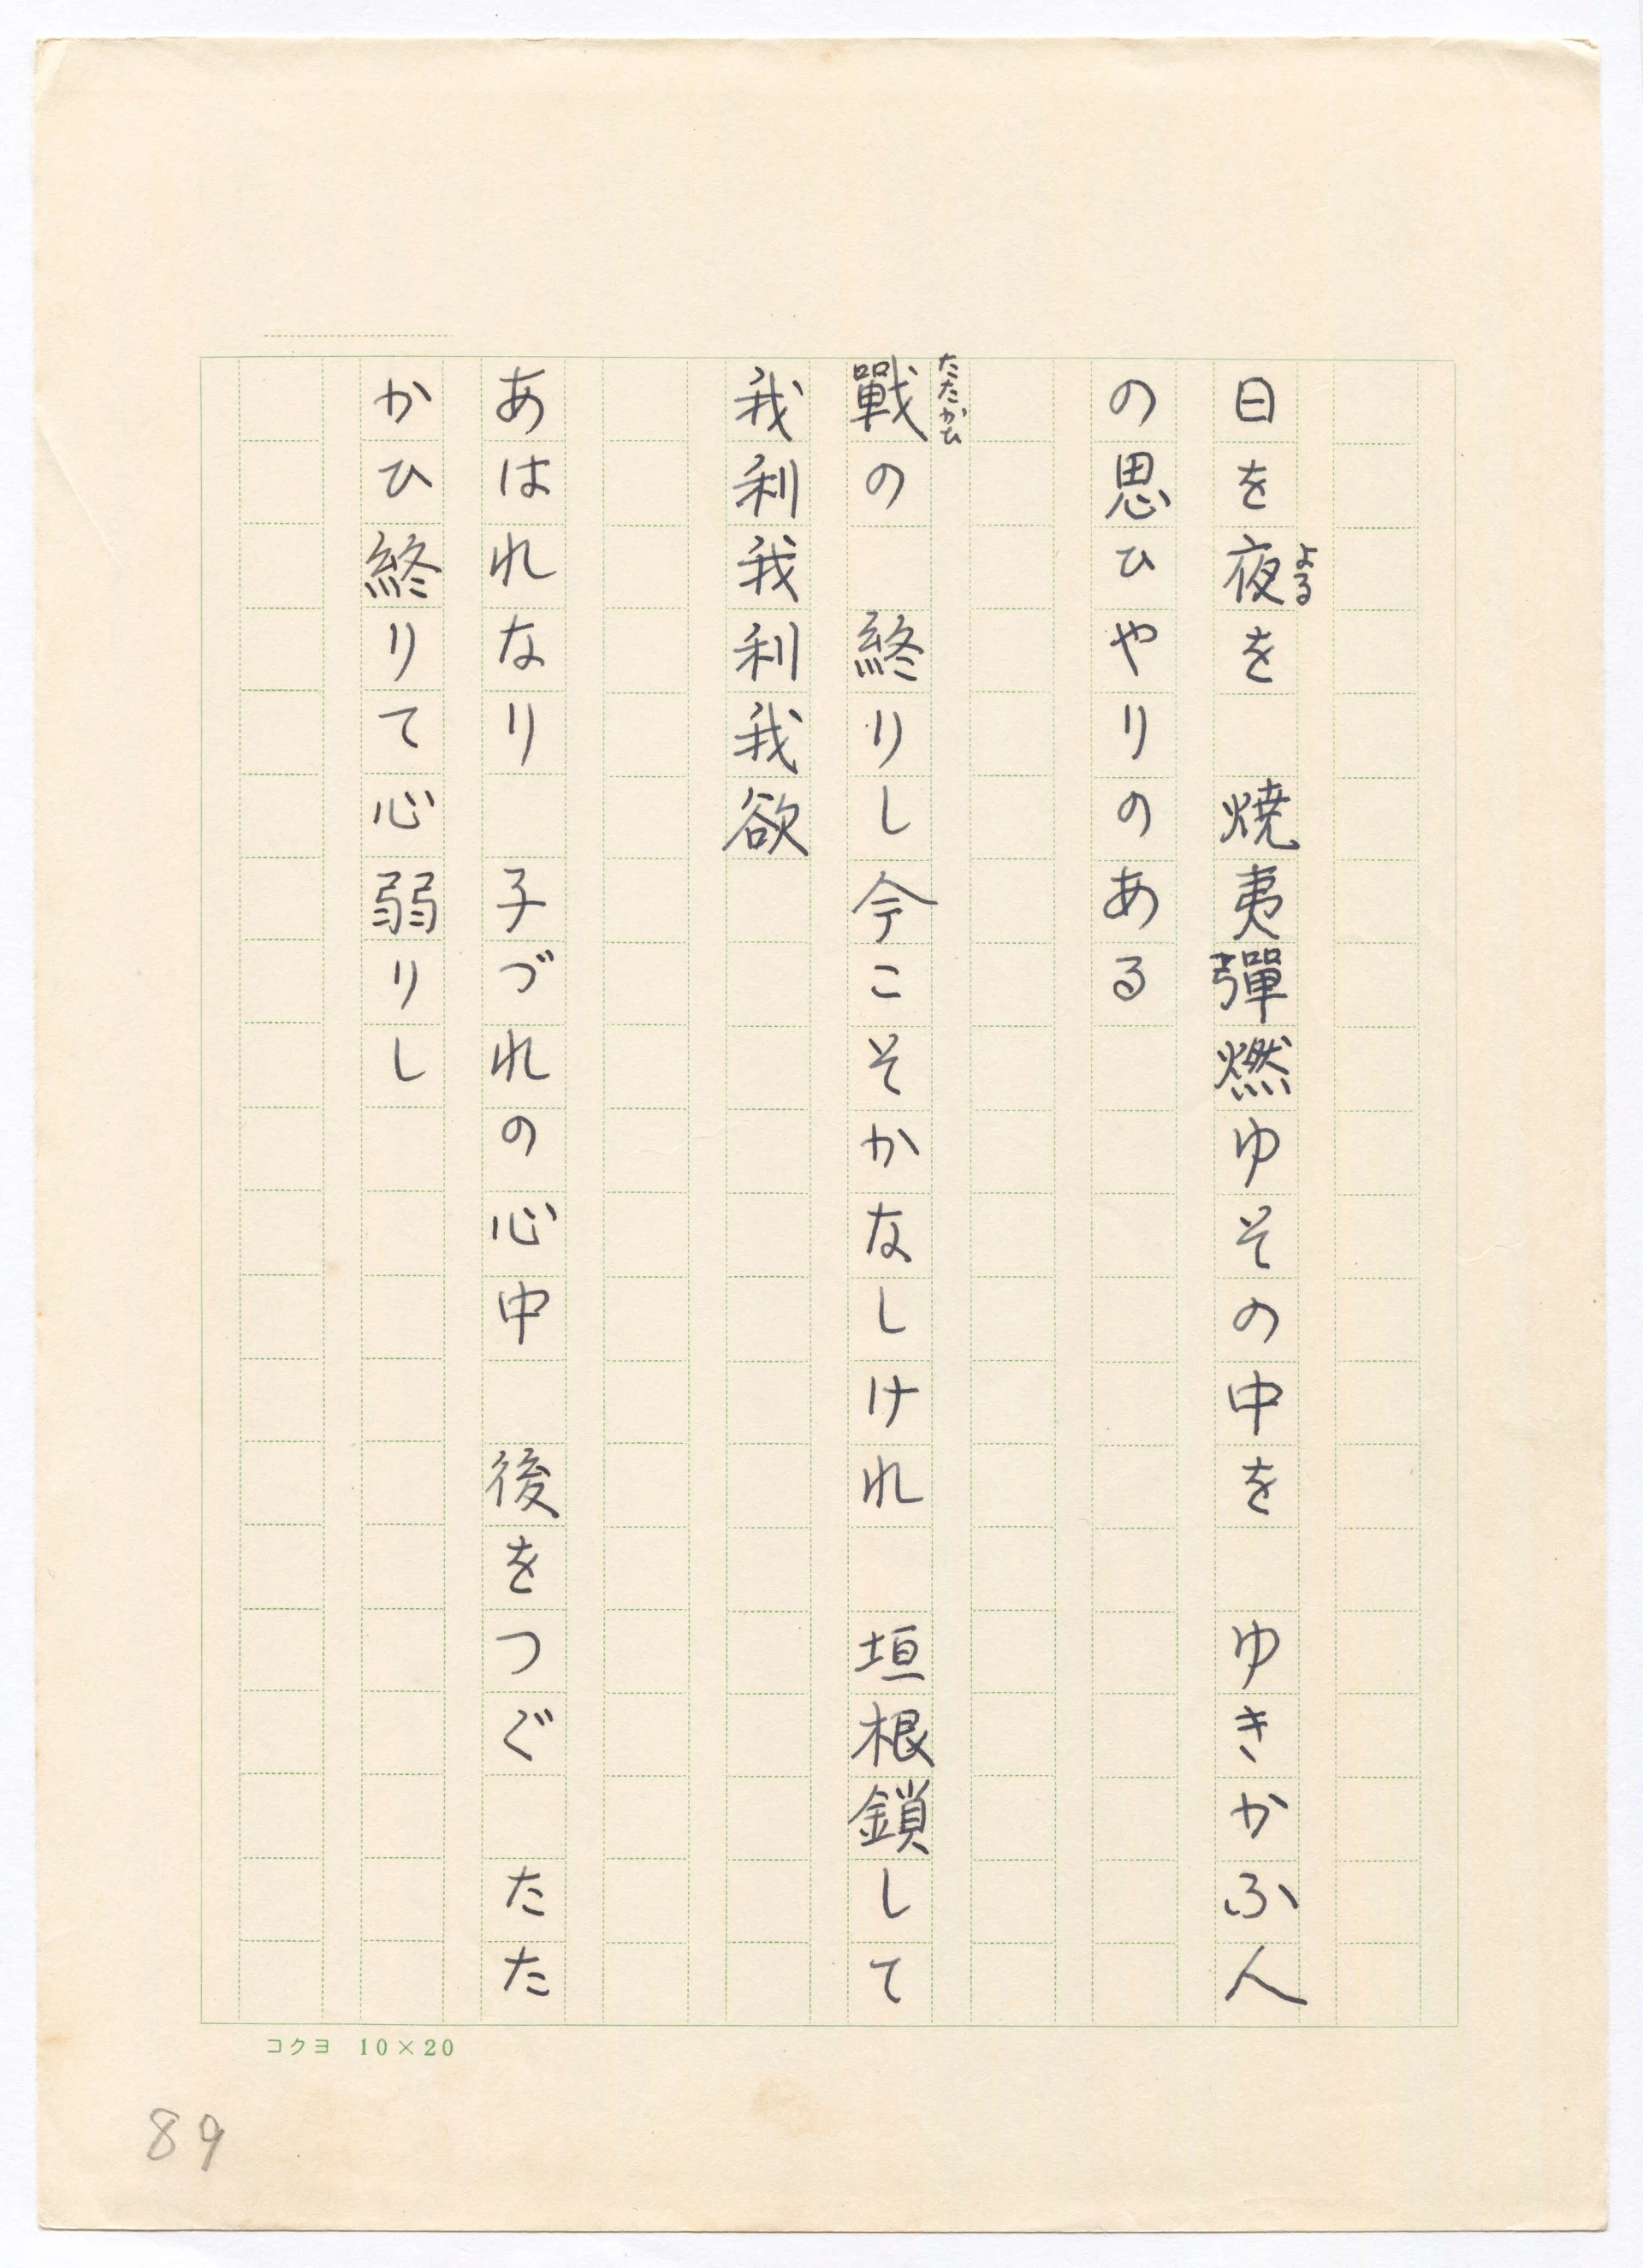 日を夜を　焼夷彈燃ゆその中を　ゆきかふ人
よる
の思ひやりのある
戰の　終りし今こそかなしけれ　垣根鎖して
たたかひ
我利我利我欲
あはれなり　子づれの心中　後をつぐ　たた
かひ終りて心弱りし
コクヨ　10×20
89